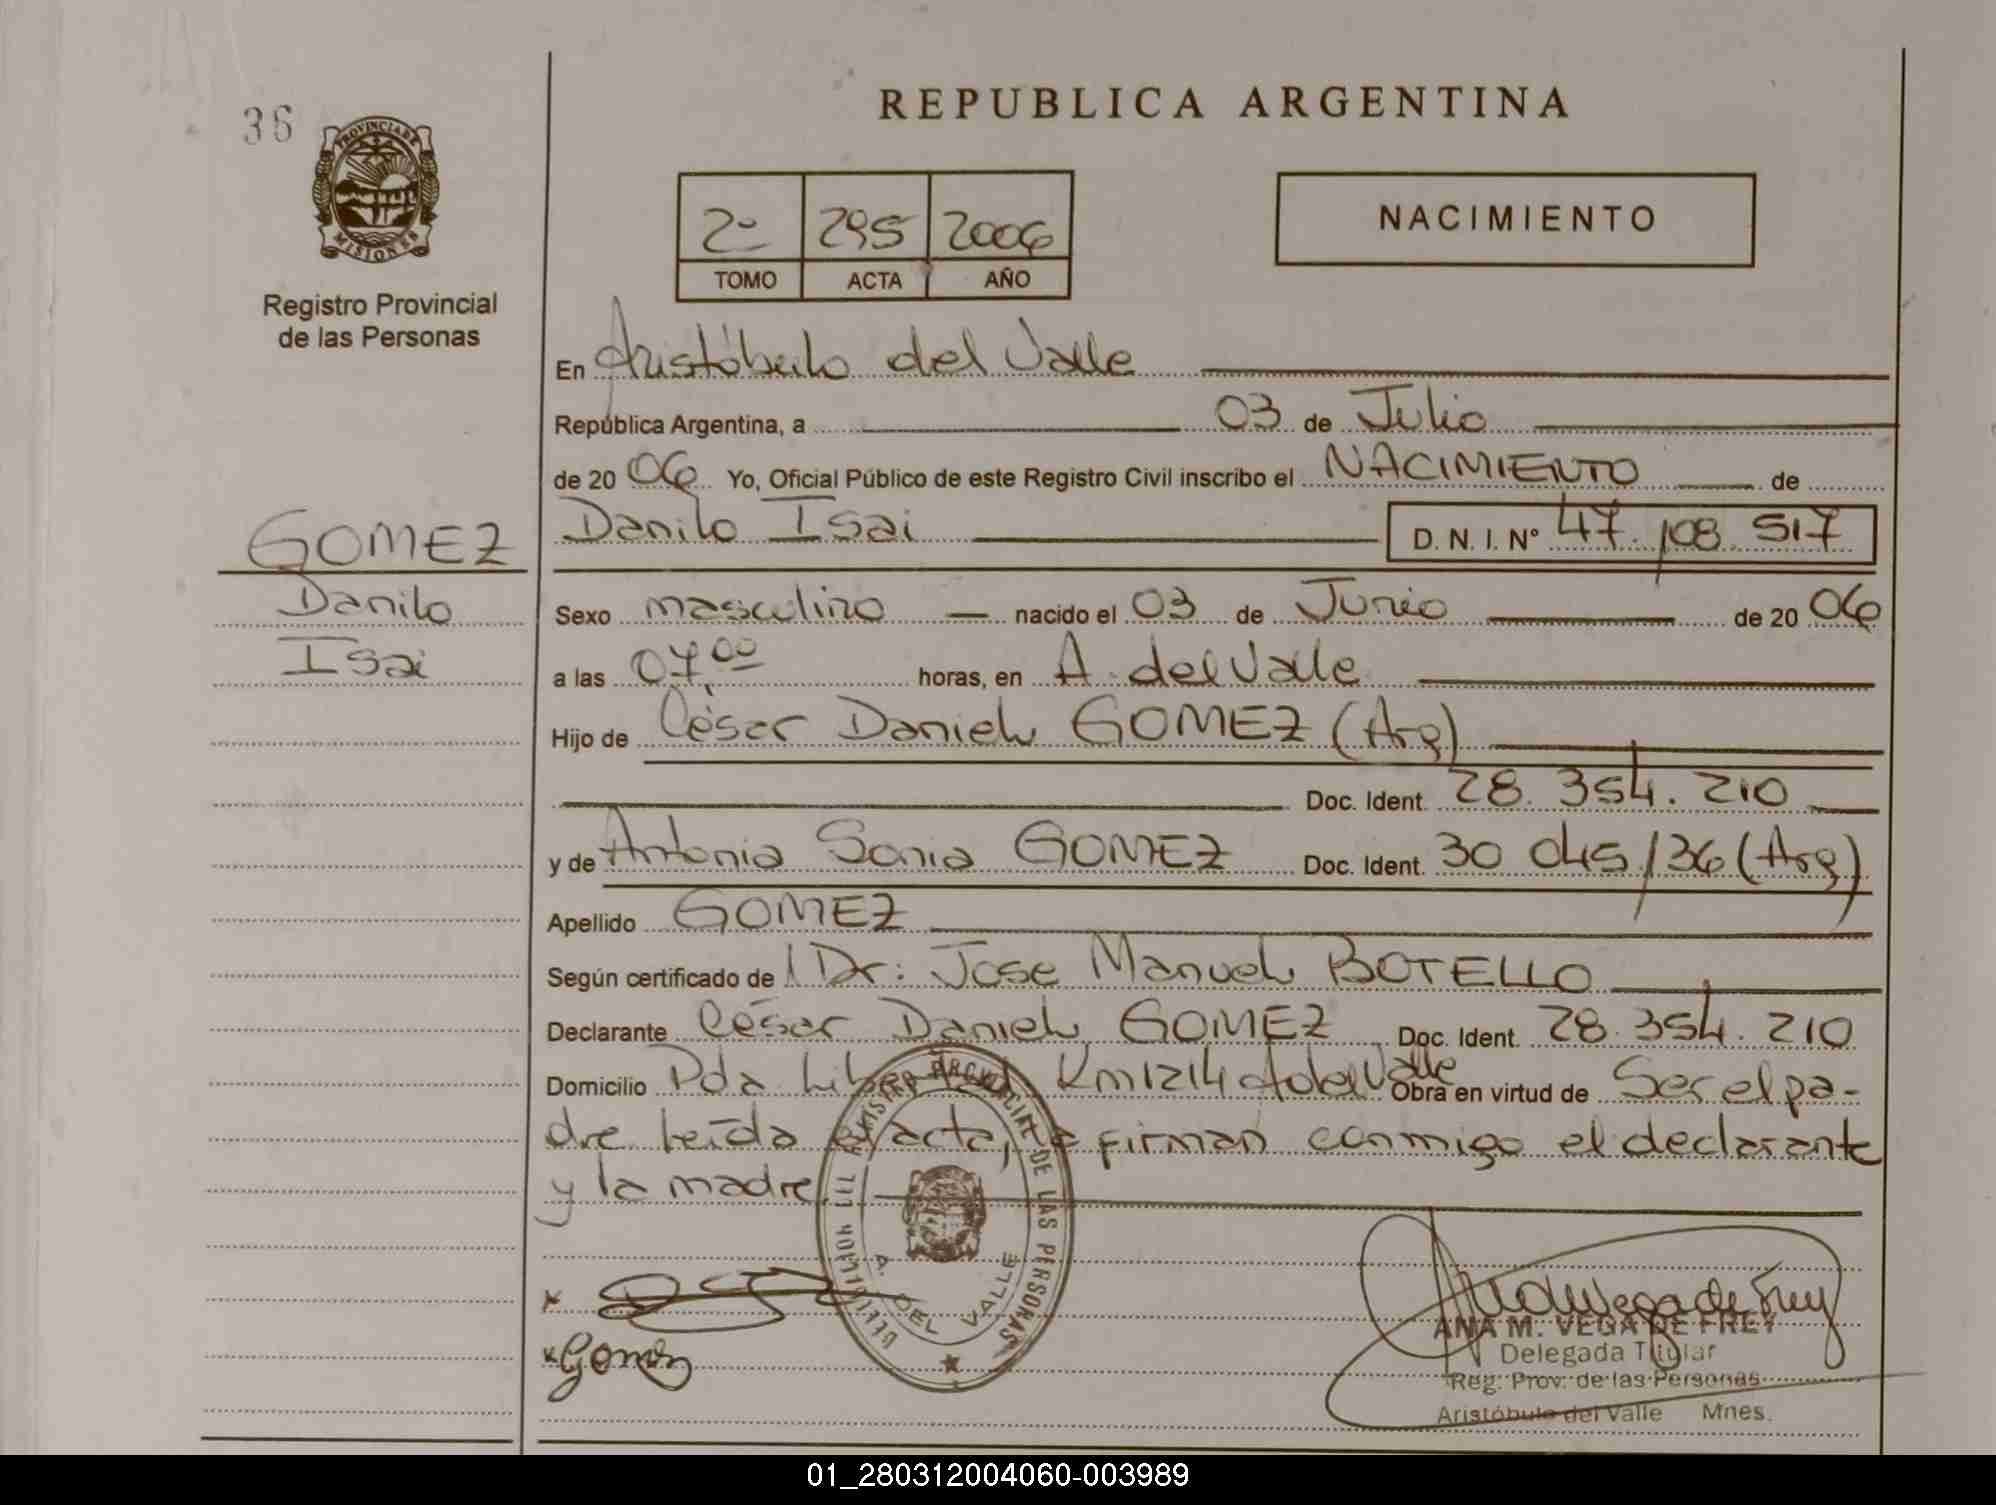 REPUBLICA ARGENTINA
36
PROVINCIA DE
MISIONES
Registro Provincial
de las Personas
2º 295 2006
TOMO ACTA AÑO
NACIMIENTO
En Aristóbulo del Valle
República Argentina, a 03 de Julio
de 2006 Yo, Oficial Público de este Registro Civil inscribo el NACIMIENTO de
Danilo Isai D. N. I. Nº 47.108.517
GOMEZ
Danilo
Isai
Sexo masculino nacido el 03 de Junio de 2006
a las 07,00 horas, en A. del Valle
Hijo de César Daniel GOMEZ (Arg)
Doc. Ident. 28.354.210
y de Antonia Sonia GOMEZ Doc. Ident. 30 045 136 (Arg)
Apellido GOMEZ
Según certificado de Dr: Jose Manuel BOTELLO
Declarante César Daniel GOMEZ Doc. Ident. 28.354.210
Domicilio Pda Libertad Km 1214 A del Valle Obra en virtud de Ser el pa-
dre leída el acta, firman conmigo el declarante
y la madre
REGISTRO PROVINCIAL DE LAS PERSONAS
A. DEL VALLE
x
x Gomez
Ana M Vega de Frey
ANA M. VEGA DE FREY
Delegada Titular
Reg. Prov. de las Personas
Aristóbulo del Valle Mnes.
01_280312004060-003989